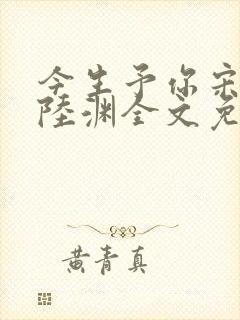 今生予你宋
陸渊全文免
黄青真